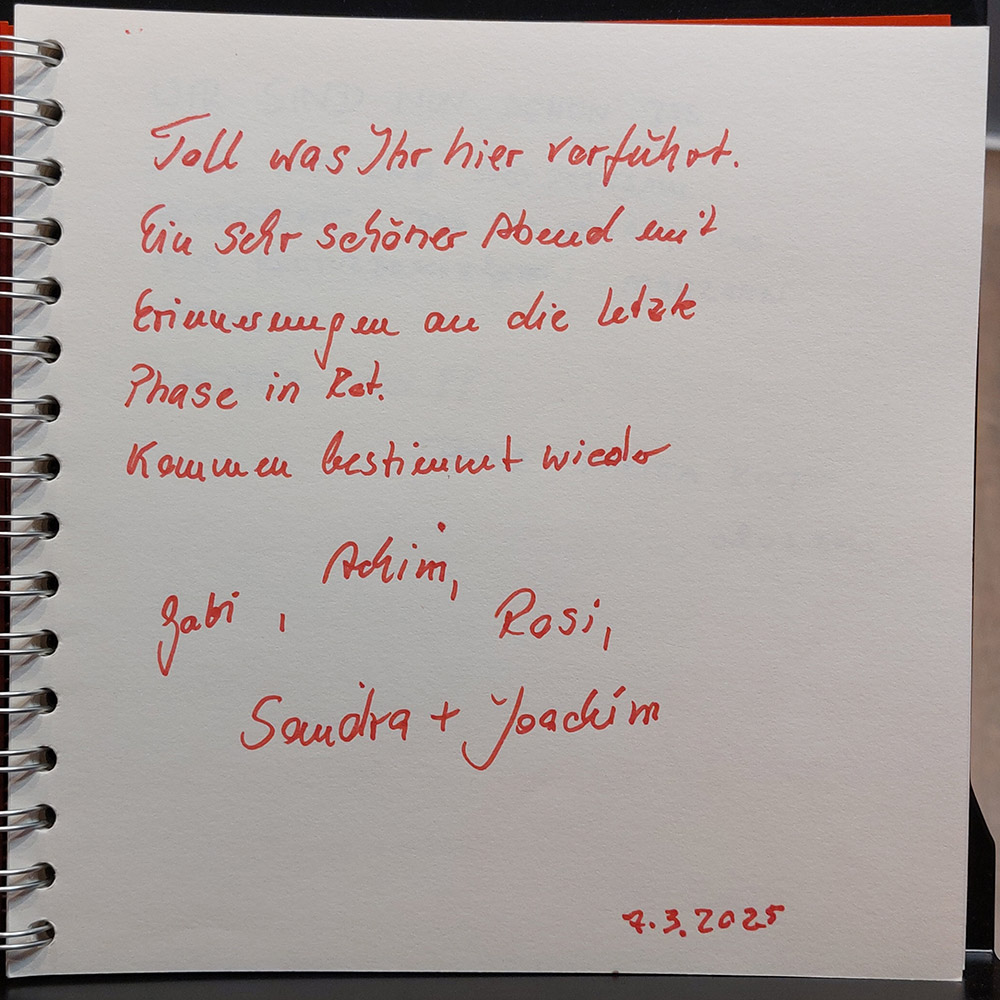 Toll was Ihr hier vorführt.
Ein sehr schöner Abend mit
Erinnerungen an die letzte
Phase in Rot.
Kommen bestimmt wieder
Achim,
Gabi , Rosi,
Sandra + Joachim
7.3.2025